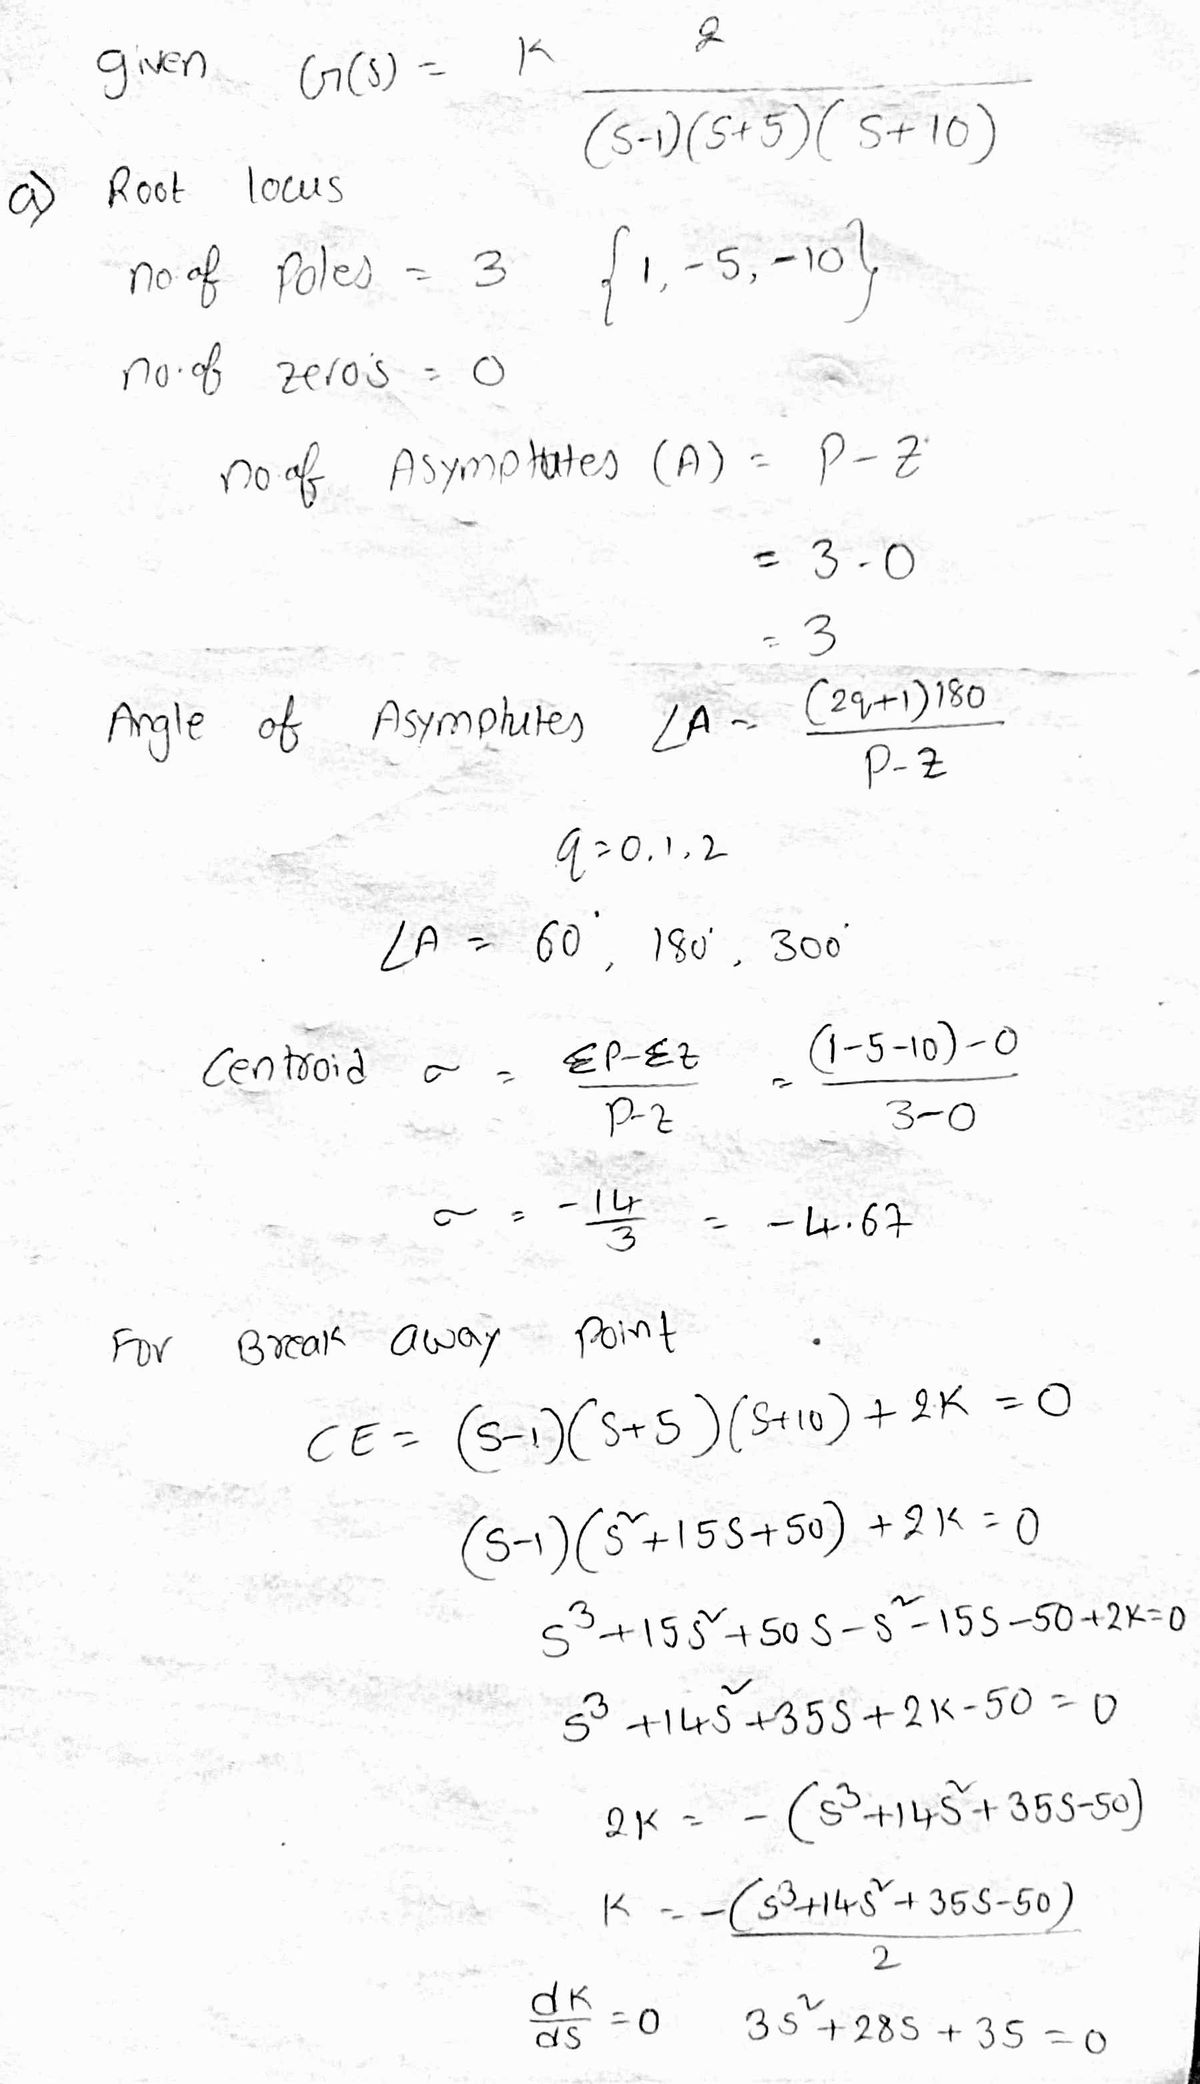 given G(s) = K 2
(s-1)(s+5)(s+10)
a) Root locus
no of Poles = 3 {1, -5, -10}
no. of zero's = 0
no. of Asymptotes (A) = P-Z
= 3-0
= 3
Angle of Asymptutes ∠A = (2q+1)180
P-Z
q=0,1,2
∠A = 60°, 180°, 300°
Centroid σ = ΣP-ΣZ = (1-5-10)-0
P-Z 3-0
σ = -14/3 = -4.67
For Break away Point
CE = (s-1)(s+5)(s+10) + 2K = 0
(s-1)(s²+15s+50) + 2K = 0
s³+15s²+50s-s²-15s-50+2K=0
s³+14s²+35s+2K-50=0
2K = -(s³+14s²+35s-50)
K = -(s³+14s²+35s-50)
2
dK/ds = 0 3s²+28s+35=0